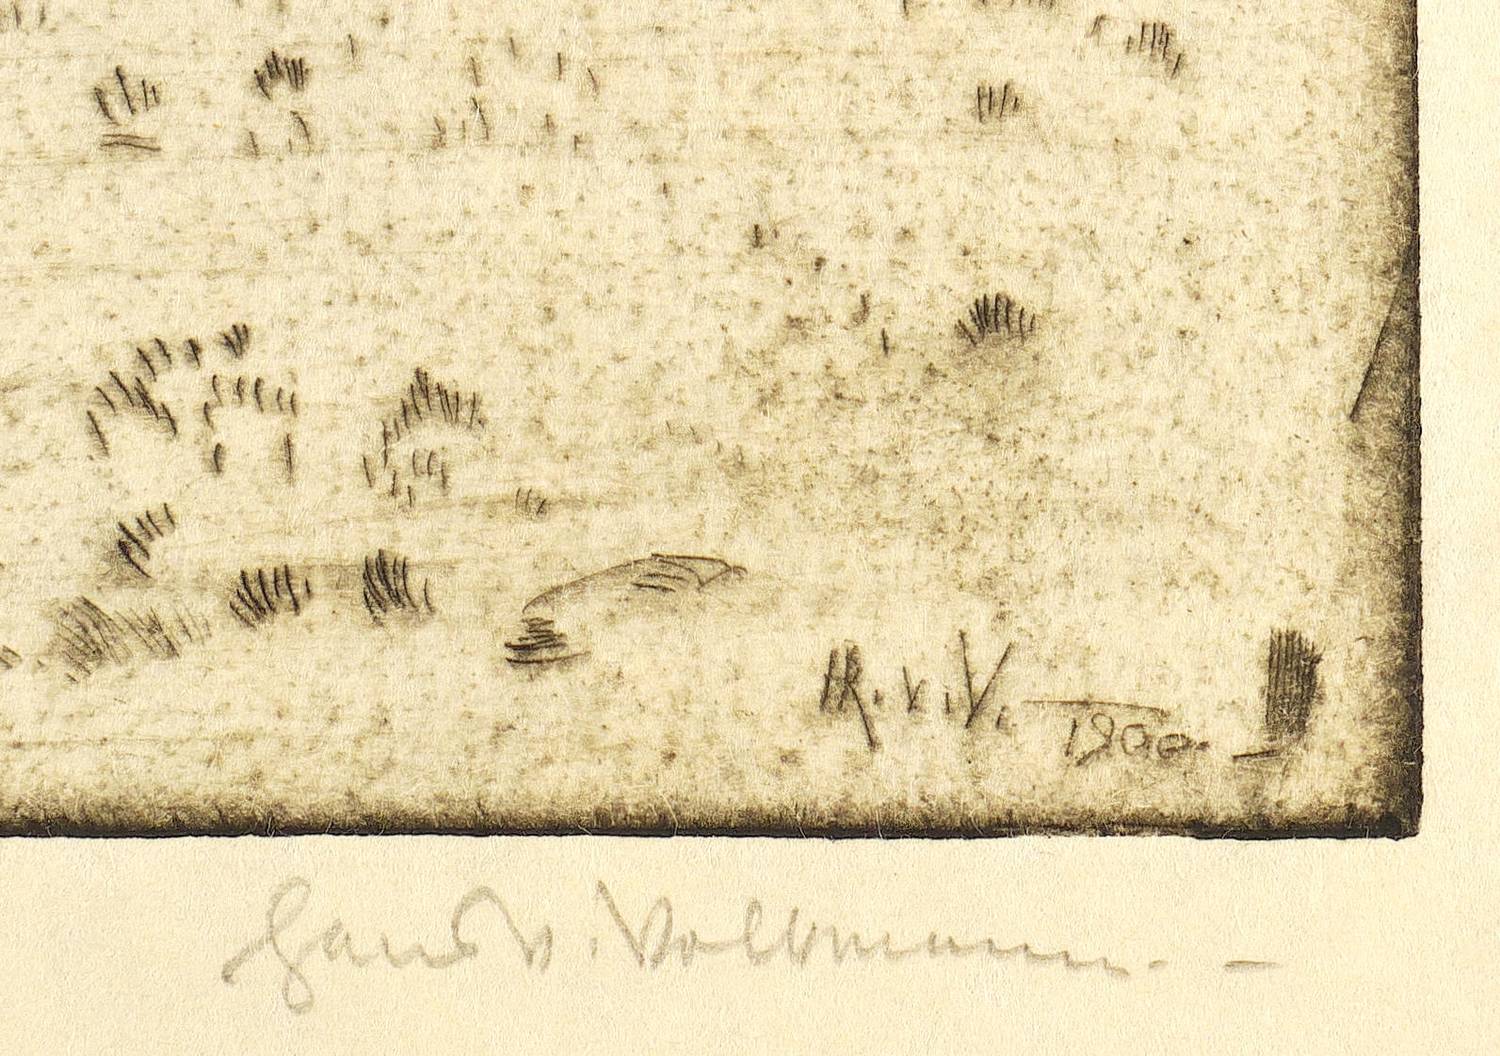 HR. v. V. 1900.
Hans v. Volkmann. –